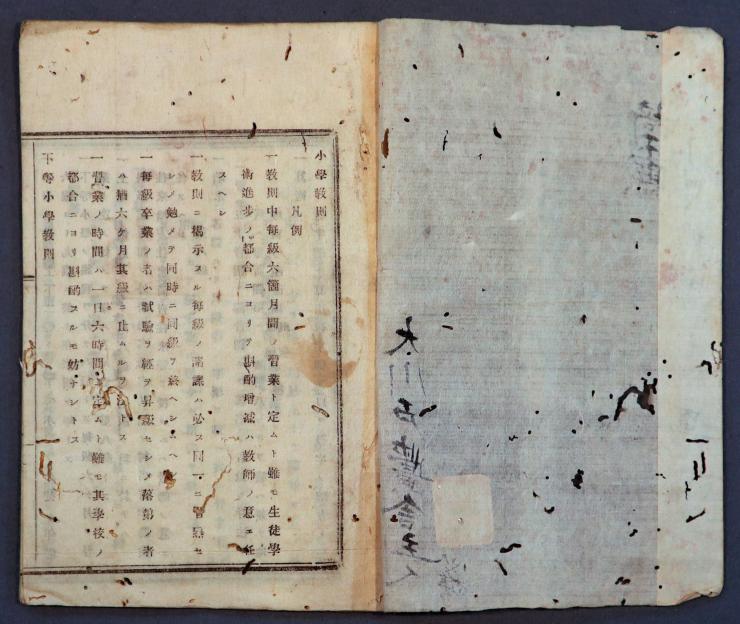 小學敎則
凡例
一敎則中每級六個月間ノ習業ト定ムト雖モ生徒學
術進步ノ都合ニヨリテ斟酌增減ハ敎師ノ意ニ任
スヘシ
一敎則ニ揭示スル每級ノ諸課ハ必ス同一ニ習熟セ
シメ勉メテ同時ニ同級ヲ終ヘシムヘ
一每級卒業ノ者ハ試驗ヲ經テ昇級セシメ落第ノ者
ハ猶六ケ月其級ニ止ムル
一習業ノ時間ハ一日六時間ト定ムト雖モ其學校ノ
都合ニヨリ斟酌スルモ妨ケナシトス
下等小學敎則
大川